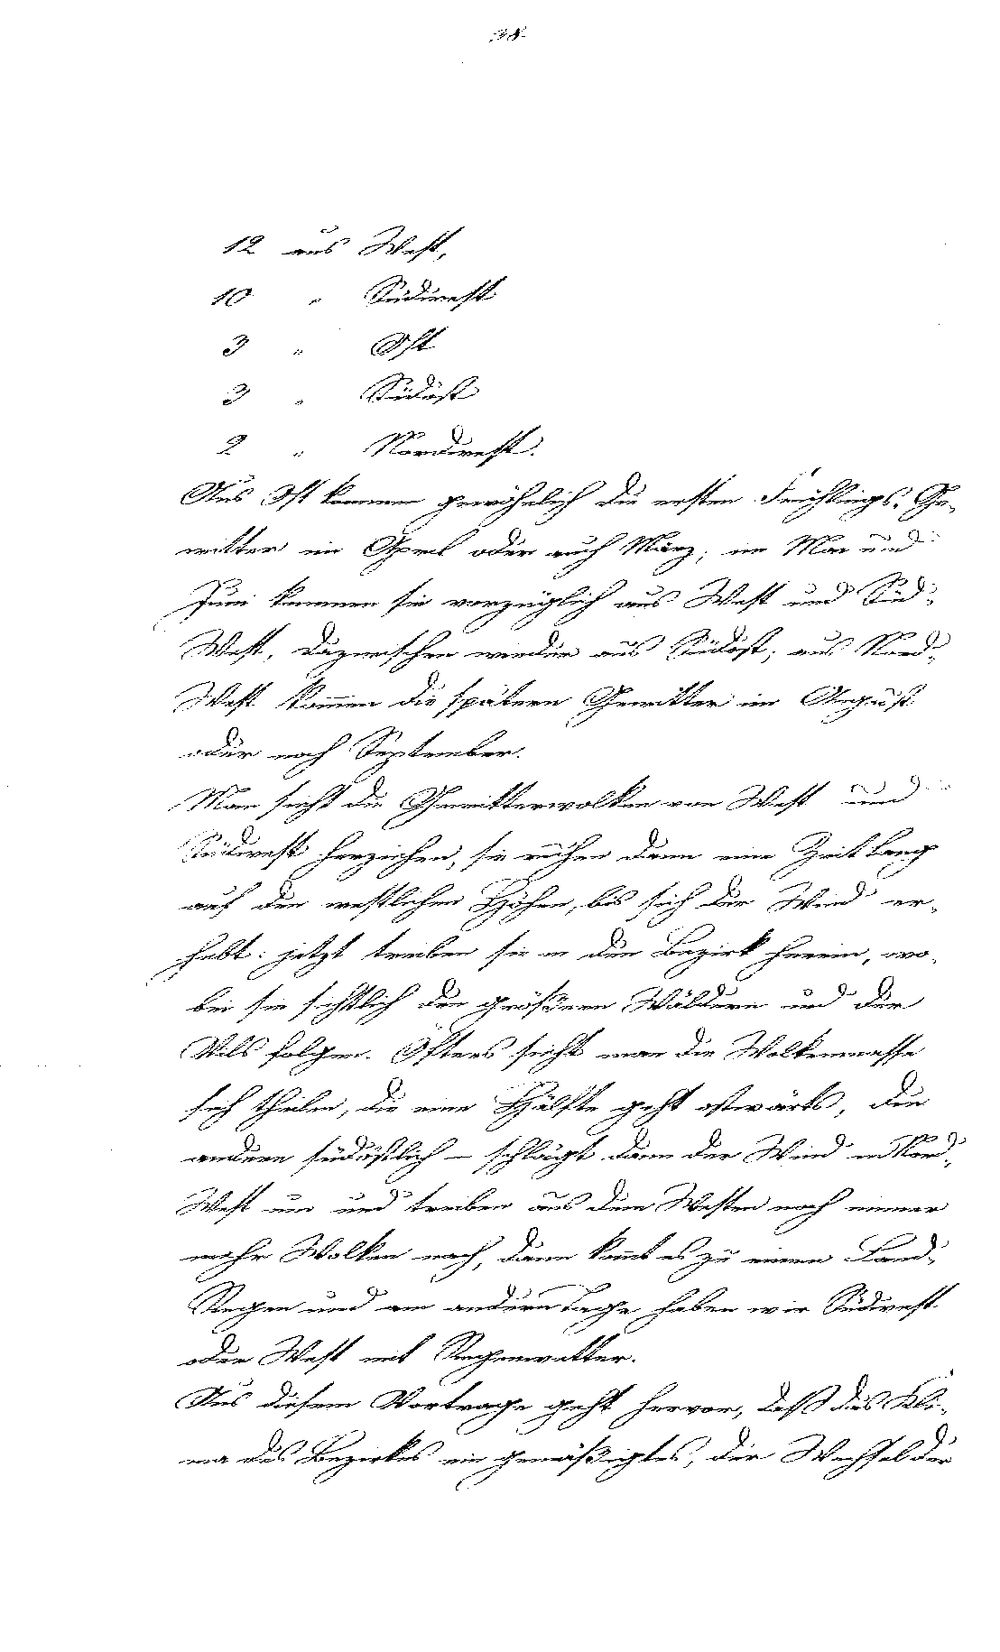 38.
12 aus West,
10 " Südwest
3 " Ost
3 " Südost
2 " Nordwest.
Aus Ost kommen gewöhnlich die ersten Frühlings-Ge-
witter im April oder auch März; im Mai und
Juni kommen sie vorzüglich aus West und Süd-
West, dazwischen wieder aus Südost; aus Nord-
West kom̄en die spätern Gewitter im August
oder noch September.
Man sieht die Gewitterwolken von West und
Südwest herziehen, sie ruhen dann eine Zeit lang
auf den westlichen Höhen, bis sich der Wind er-
hebt: jetzt treiben sie in den Bezirk herein, wo-
bei sie sichtlich den größern Wäldern und der
Vils folgen. Öfters sieht man die Wolkenmasse
sich theilen, die eine Hälfte geht ostwärts, die
andere südöstlich – schlägt dann der Wind in Nord-
West um und treiben aus dem Westen noch immer
mehr Wolken nach, dann kom̄t es zu einem Land-
Regen und am andern Tage haben wir Südwest
oder West mit Regenwetter.
Aus diesem Vortrage geht hervor, daß das Kli-
ma des Bezirkes ein gemäßigtes, der Wechsel der